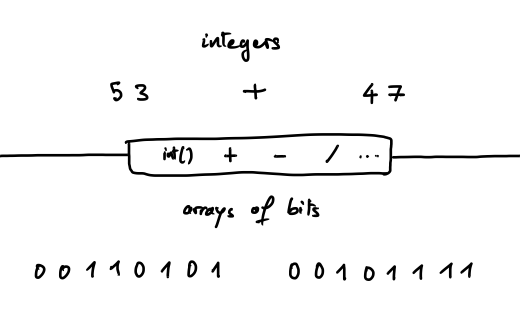 integers
53 + 47
int() + - / ...
arrays of bits
0 0 1 1 0 1 0 1 0 0 1 0 1 1 1 1